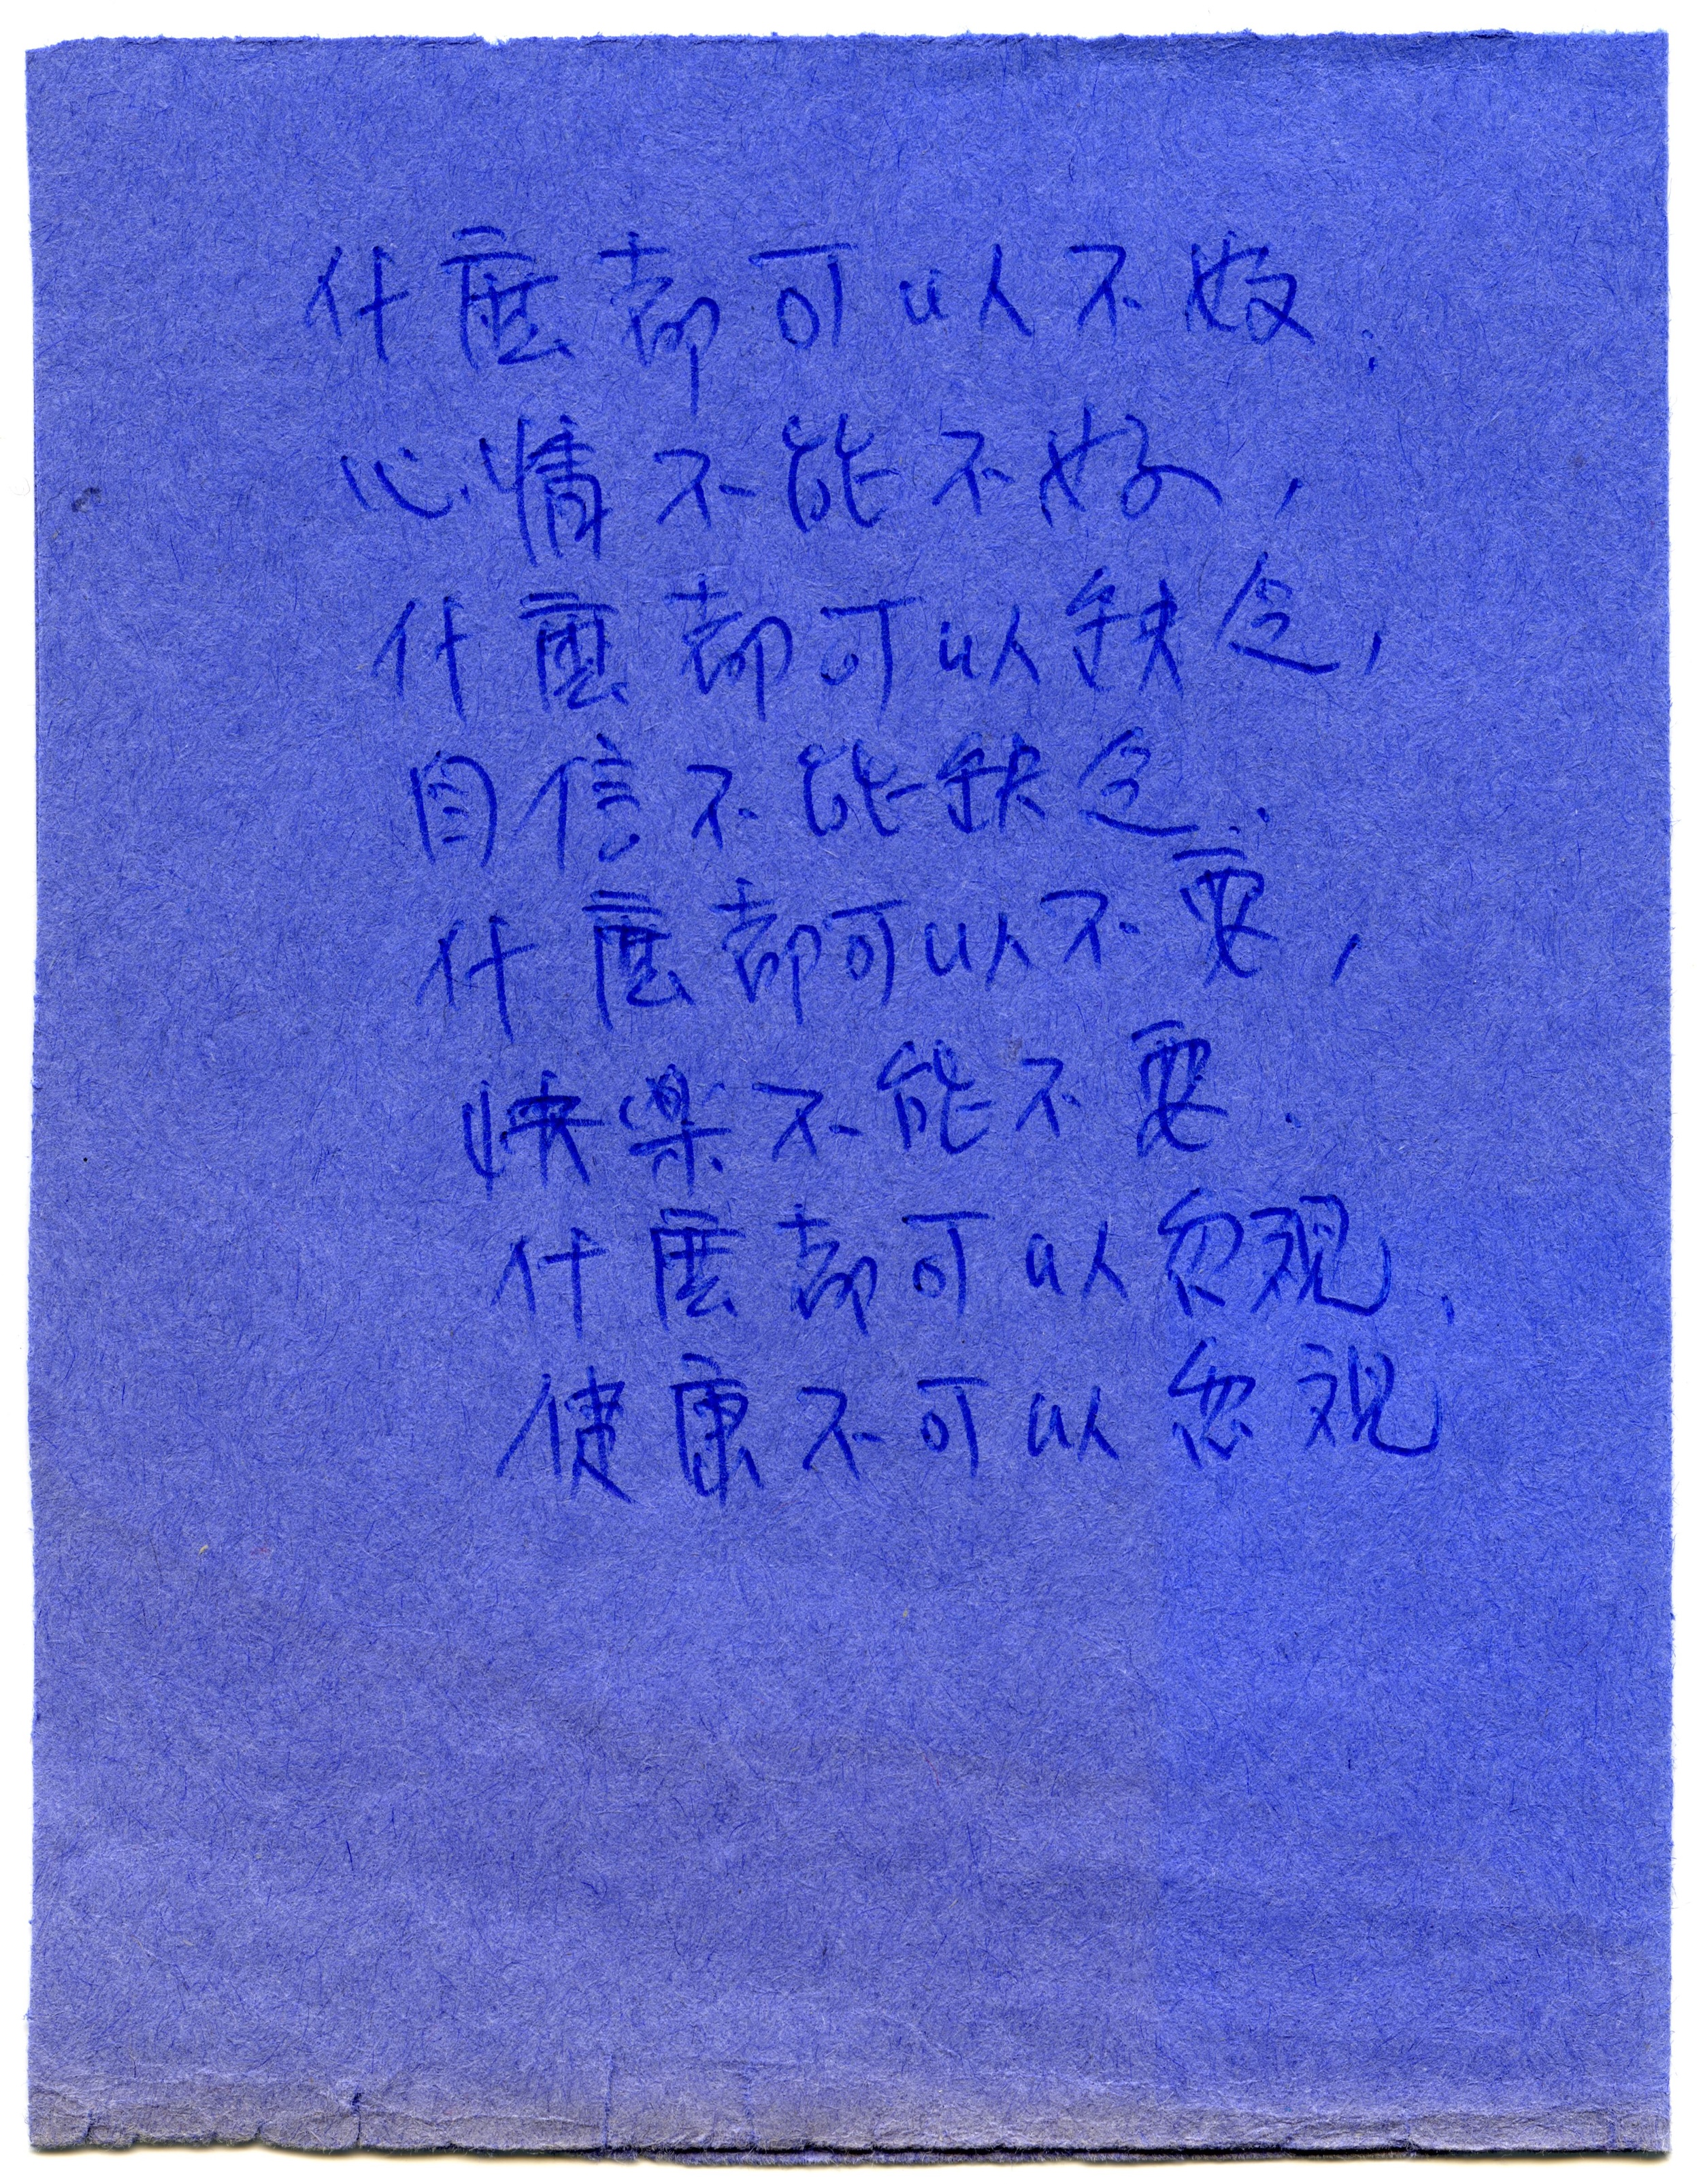 什麼都可以不好.
心情不能不好,
什麼都可以缺乏,
自信不能缺乏.
什麼都可以不要,
快樂不能不要.
什麼都可以忽視,
健康不可以忽視